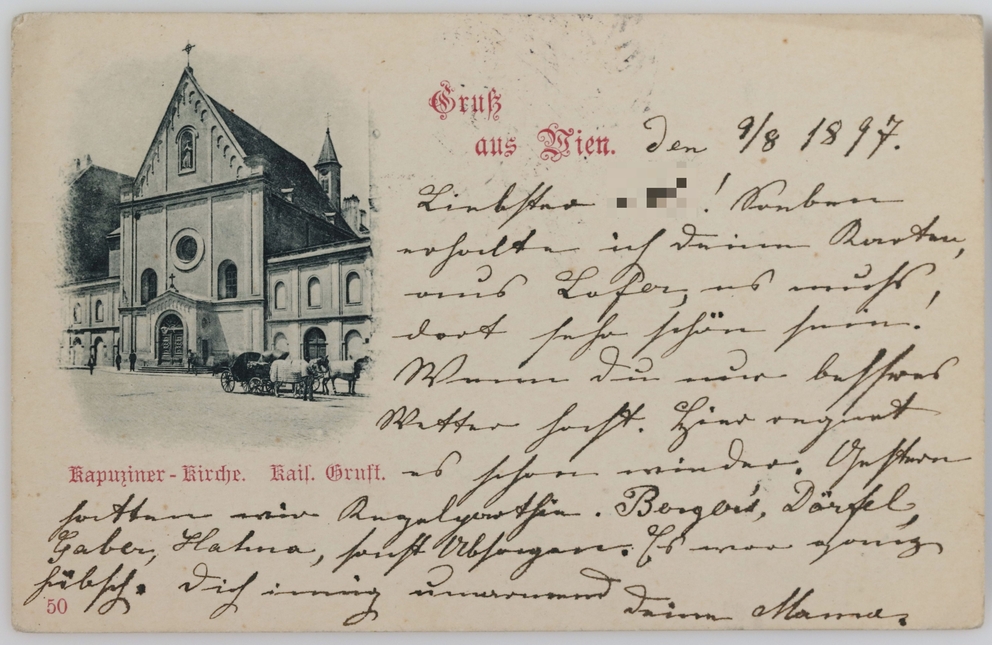 Gruß
aus Wien. den 9/8 1897.
Liebster ! Soeben
erhalte ich deine Karten,
aus Lofer, es muß,
dort sehr schön sein!
Wenn du nur besseres
Wetter hast. Hier regnet
es schon wieder. Gestern
Kapuziner-Kirche. Kais. Gruft.
hatten wir Kegelparthie. Berger's, Dörfel,
Gaber, Hahna, sonst Absagen. Es war ganz
hübsch. Dich innig umarmend
deine Mama.
50